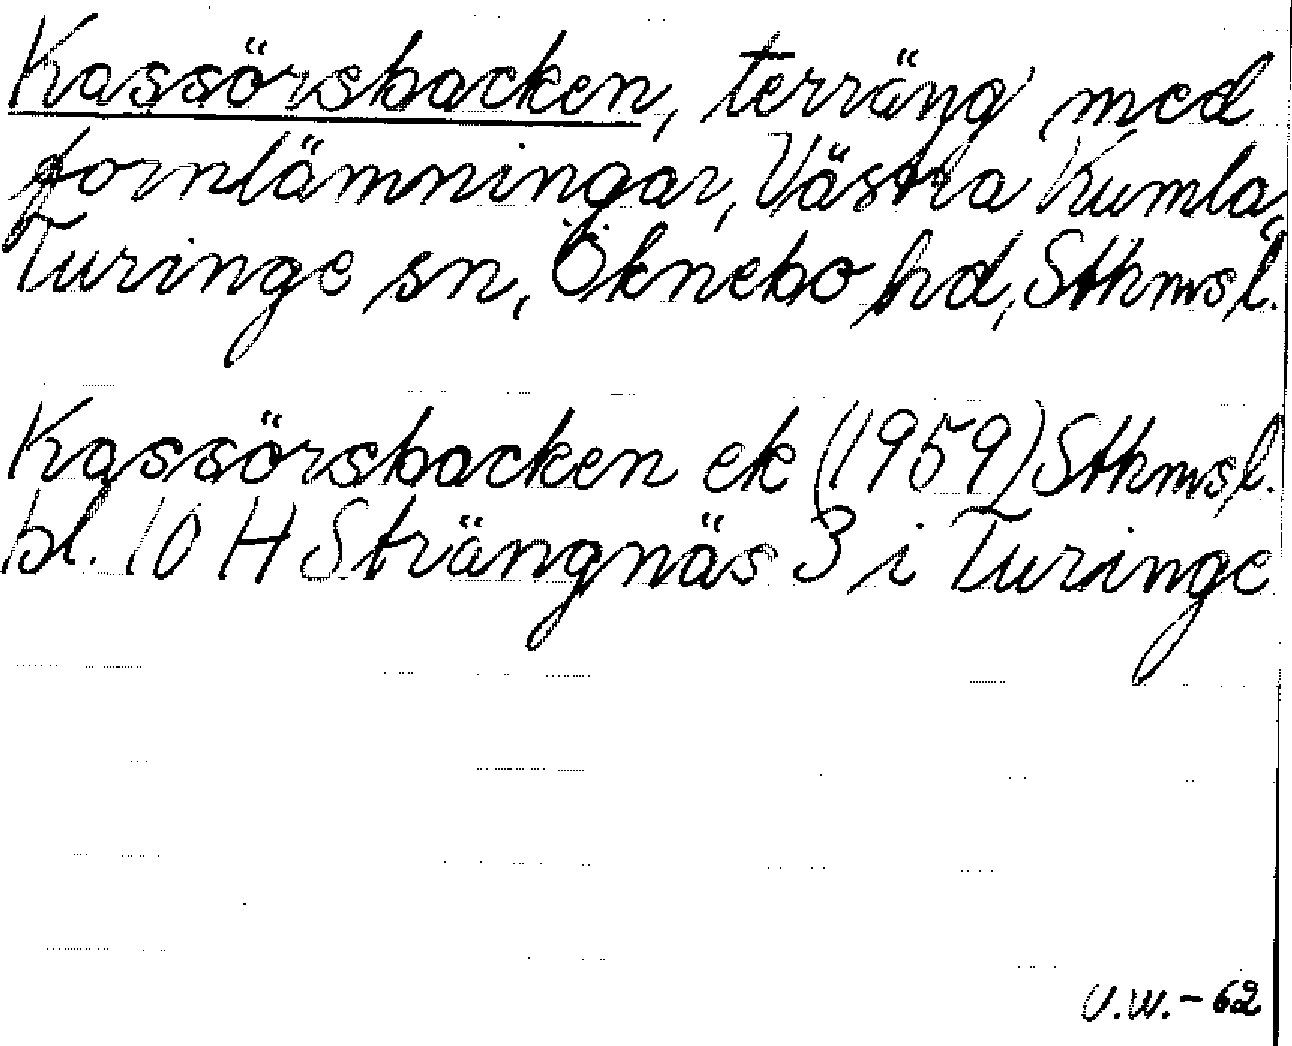 Kassörsbacken, terräng med
fornlämningar, Västra Kumla,
Turinge sn, Öknebo hd, Sthmsl.
Kassörsbacken ek (1959) Sthmsl.
bl. 10 H Strängnäs 3 i Turinge
U.W. - 62